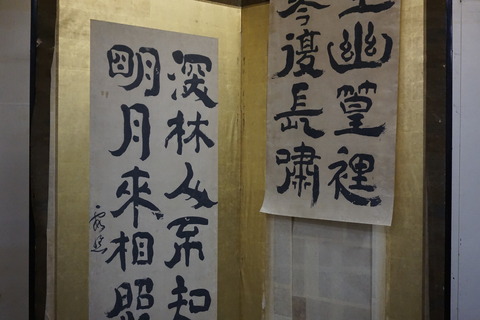 幽篁裡
琴復長嘯
深林人不知
明月來相照